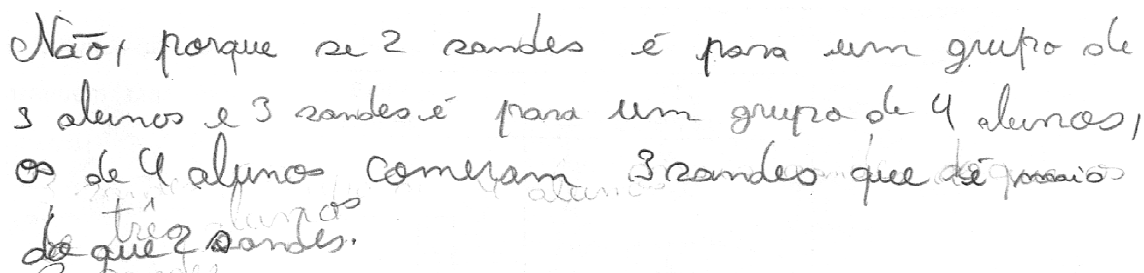 Não, porque se 2 sandes é para um grupo de
3 alunos e 3 sandes é para um grupo de 4 alunos,
os de 4 alunos comeram 3 sandes que é mais
do que 2 sandes.